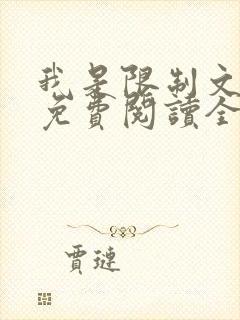 我是限制文
免費閱讀全
賈璉